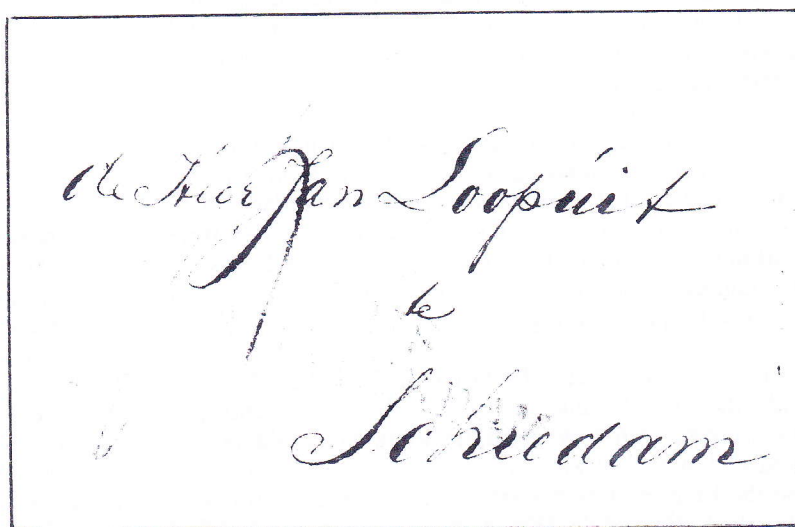 de Heer Jan Loopuit
te
Schiedam